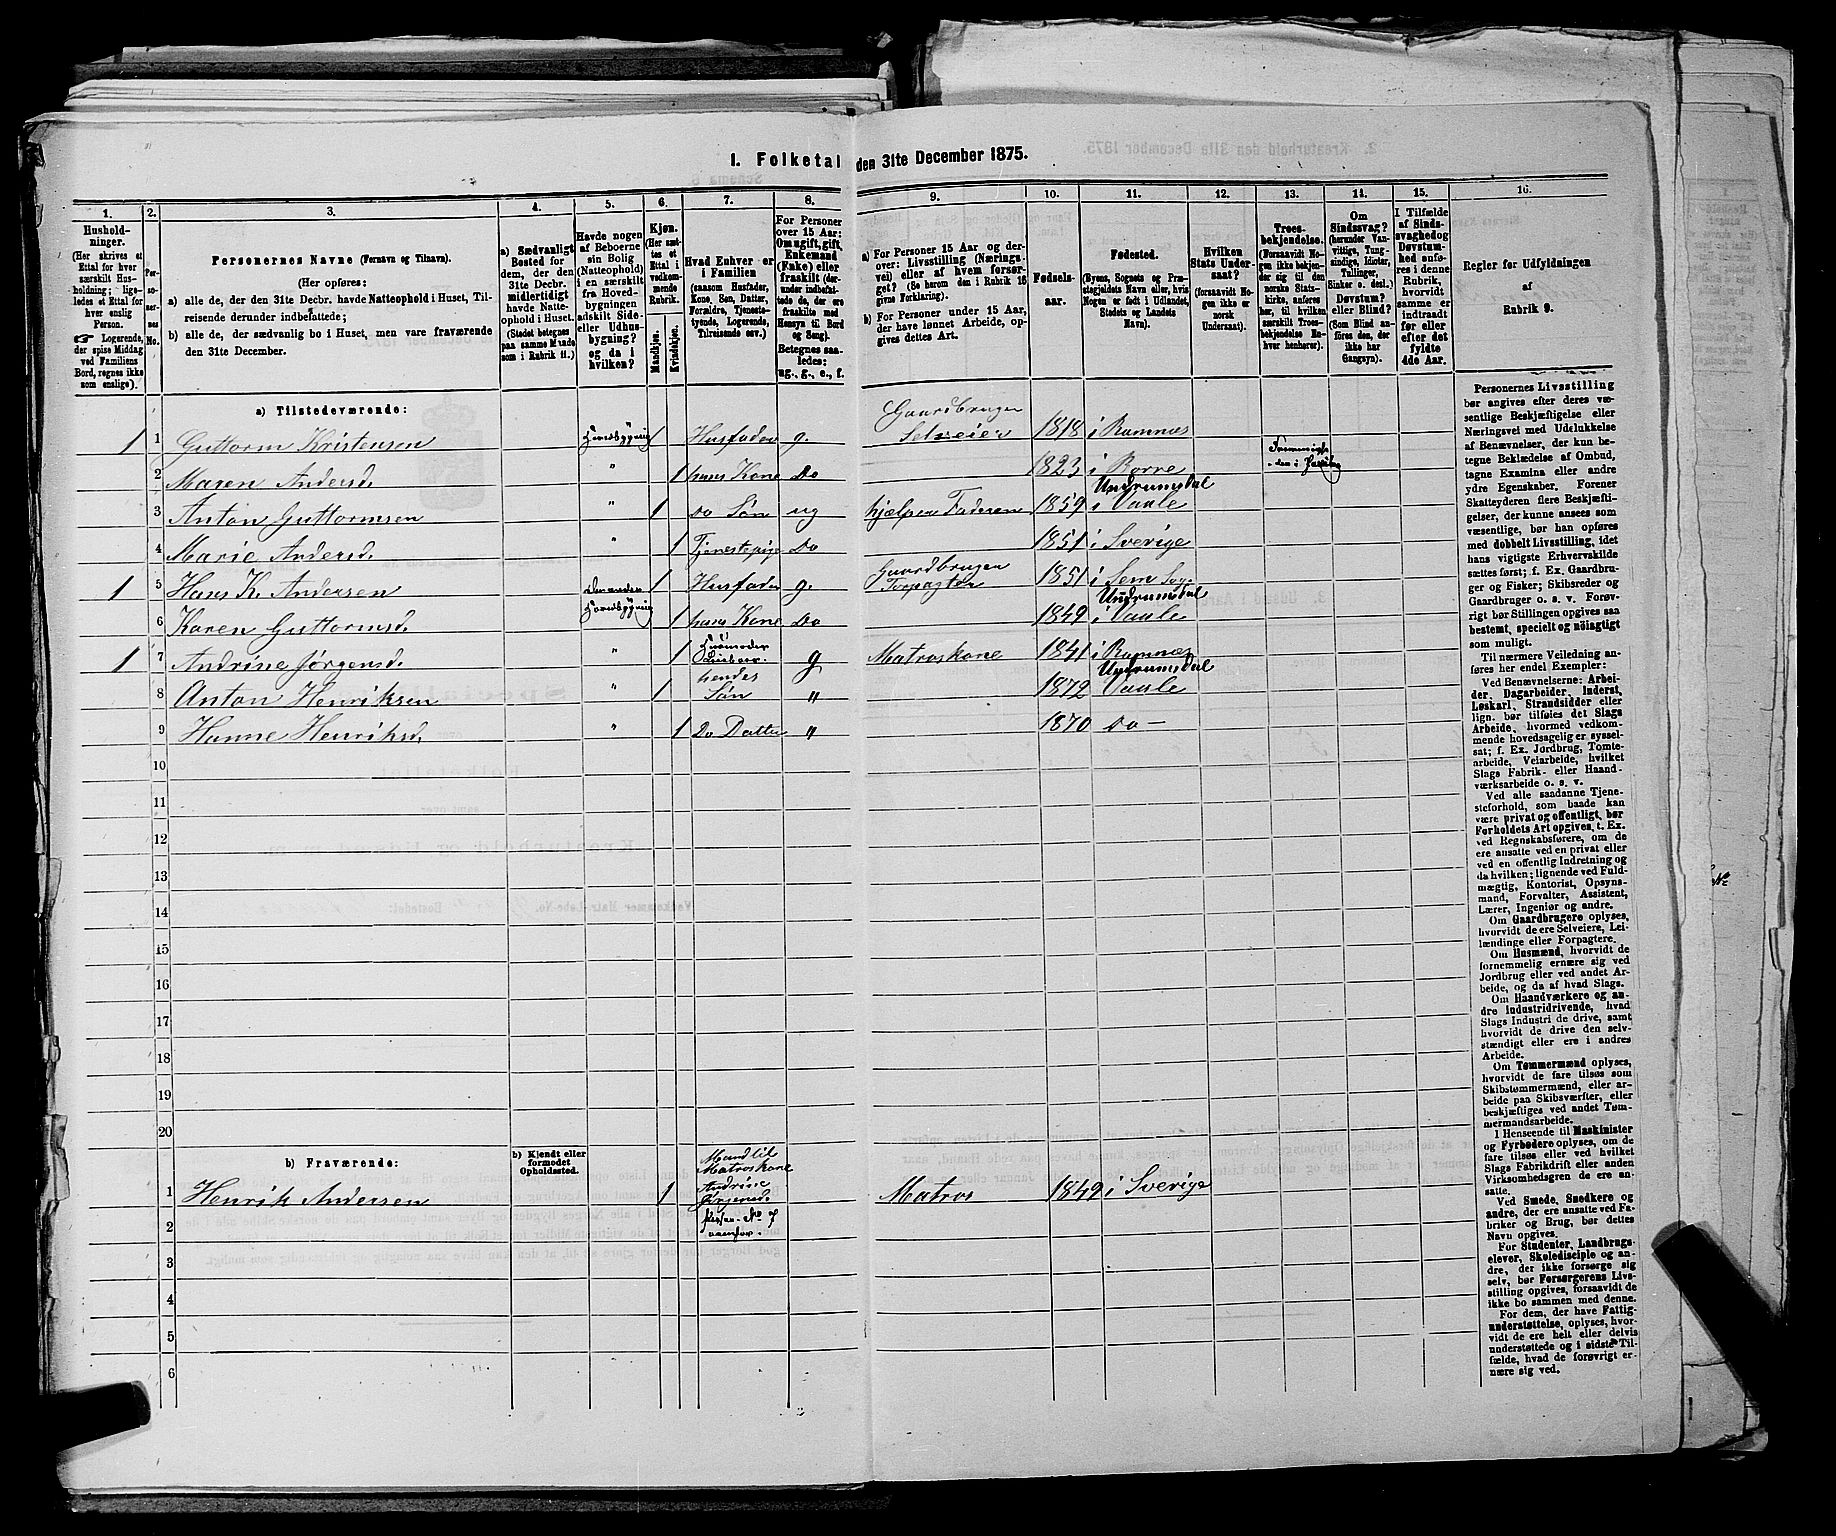 I. Folketal den 31te December 1875.
1. 2. 3. 4. 5. 6. 7. 8. 9. 10. 11. 12. 13. 14. 15. 16.
Husholdninger.
(Her skrives et Ettal for hver særskilt Husholdning; ligeledes et Ettal for hver enslig Person.
☛ Logerende, der spise Middag ved Familiens Bord, regnes ikke som enslige).
Personernes No.
Personernes Navne (Fornavn og Tilnavn).
(Her opføres:
a) alle de, der den 31te Decbr. havde Natteophold i Huset, Tilreisende derunder indbefattede;
b) alle de, der sædvanlig bo i Huset, men vare fraværende den 31te December.
a) Sædvanligt Bosted for dem, der den 31te Decbr. midlertidigt havde Natteophold i Huset. (Stedet betegnes paa samme Maade som i Rubrik 11.)
Havde nogen af Beboerne sin Bolig (Natteophold) i en særskilt fra Hovedbygningen adskilt Side- eller Udhusbygning? og da i hvilken?
Kjøn. (Her sættes et Ettal i vedkommende Rubrik.
Mandkjøn.
Kvindekjøn.
Hvad Enhver er i Familien
(saasom Husfader, Kone, Søn, Datter, Forældre, Tjenestetyende, Logerende, Tilreisende osv.)
For Personer over 15 Aar: Om ugift, gift, Enkemand (Enke) eller fraskilt (derunder indbefattede de, der ere fraskilte med Hensyn til Bord og Seng).
Betegnes saaledes: ug., g., e., f.
a) For Personer 15 Aar og derover: Livsstilling (Næringsvei) eller af hvem forsørget. (Se herom den i Rubrik 16 givne Forklaring).
b) For Personer under 15 Aar, der have lønnet Arbeide, opgives dettes Art.
Fødselsaar.
Fødested.
(Byens, Sognets og Præstegjeldets Navn eller, hvis Nogen er født i Udlandet, Stedets og Landets Navn).
Hvilken Stats Undersaat?
(forsaavidt Nogen ikke er norsk Undersaat).
Troesbekjendelse.
(Forsaavidt Nogen ikke bekjender sig til den norske Statskirke, anføres her, til hvilken særskilt Troesbekjendelse Enhver henhører).
Om Sindssvag? (herunder Vanvittige, Tungsindige, Idioter, Tullinger, Sinker o. desl.) Døvstum? eller Blind? (Som Blind anføres den, der ikke har Gangsyn).
I Tilfælde af Sindssvaghed og Døvstumhed anføres i denne Rubrik, hvorvidt samme er indtraadt før eller efter det fyldte 4de Aar.
Regler for Udfyldningen af Rubrik 9.
a) Tilstedeværende:
1 1 Guttorm Kristensen Hovedbygning 1 Husfader g. Gaardbruger Selveier 1818 i Ramnæs
2 Maren Andersd. " 1 hans Kone Do 1823 i Borre
3 Anton Guttormsen " 1 Do Søn ug hjælper Faderen 1859 i Undrumsdal Vaale
4 Marie Andersd. " 1 Tjenestepige Do 1851 i Sverige
1 5 Hans K. Andersen 1 Husfader g. Gaardbruger Forpagter 1851 i Sem Sog
6 Karen Guttormsd. Hovedbygning 1 hans Kone Do 1849 i Undrumsdal Vaale
1 7 Andrine Jørgensd. 1 g Matroskone 1841 i Ramnæs
8 Anton Henriksen " 1 hendes Søn " 1872 Undrumsdal Vaale
9 Hanne Henriksd. " 1 Do Datter " 1870 Do –
10
11
12
13
14
15
16
17
18
19
20
b) Fraværende:
b) Kjendt eller formodet Opholdssted.
1 Henrik Andersen 1 Mand til Matroskone Andrine Jørgensd. No 7 Matros 1849 i Sverige
2
3
4
5
6
Personernes Livsstilling
bør angives efter deres væsentlige Beskjæftigelse eller
Næringsvei med Udelukkelse
af Benævnelser, der kun betegne Beklædelse af Ombud,
tagne Examina eller andre
ydre Egenskaber. Forener
Skatteyderen flere Beskjæftigelser, der kunne ansees som
væsentlige, bør han opføres
med dobbelt Livsstilling, idet
hans vigtigste Erhvervskilde
sættes først; f. Ex. Gaardbruger og Fisker; Skibsreder og
Gaardbruger o. s. v. Forøvrigt bør Stillingen opgives saa
bestemt, specielt og nøiagtigt
som muligt.
Til nærmere Veiledning anføres her endel Exempler:
Ved Benævnelserne: Arbeider, Dagarbeider, Inderst,
Løskarl, Strandsidder eller
lign. bør tilføies det Slags
Arbeide, hvormed vedkommende hovedsagelig er sysselsat; f. Ex. Jordbrug, Tomtearbeide, Veiarbeide, hvilket
Slags Fabrik- eller Haandværksarbeide o. s. v.
Ved alle saadanne Tjenesteforhold, som baade kan
være privat og offentligt, bør
Forholdets Art opgives, t. Ex.
ved Regnskabsførere, om de
ere ansatte ved en privat eller
ved en offentlig Indretning og
da hvilken; lignende ved Fuldmægtig, Kontorist, Opsynsmand, Forvalter, Assistent,
Lærer, Ingeniør og andre.
Om Gaardbrugere oplyses,
hvorvidt de ere Selveiere, Leilændinge eller Forpagtere.
Om Husmænd, hvorvidt de
fornemmelig ernære sig ved
Jordbrug eller ved andet Arbeide, og da af hvad Slags.
Om Haandværkere og andre Industridrivende, hvad
Slags Industri de drive, samt
hvorvidt de drive den selvstændigt eller ere i andres
Arbeide.
Om Tømmermænd oplyses,
hvorvidt de fare tilsøs som
Skibstømmermænd, eller arbeide paa Skibsværfter, eller
beskjæftiges ved andet Tømmermandsarbeide.
I Henseende til Maskinister
og Fyrbødere oplyses, om de
fare tilsøs eller ved hvilket
Slags Fabrikdrift eller anden
Virksomhedsgren de ere ansatte.
Ved Smede, Snedkere og
andre, der ere ansatte ved Fabriker og Brug, bør dettes
Navn opgives.
For Studenter, Landbrugselever, Skoledisciple og andre, der ikke forsørge sig
selv, bør Forsørgerens Livsstilling opgives, forsaavidt de
ikke bo sammen med denne.
For dem, der have Fattigunderstøttelse, oplyses, hvorvidt de ere helt eller delvis
understøttede og i sidste Tilfælde, hvad de forøvrigt ernære sig ved.